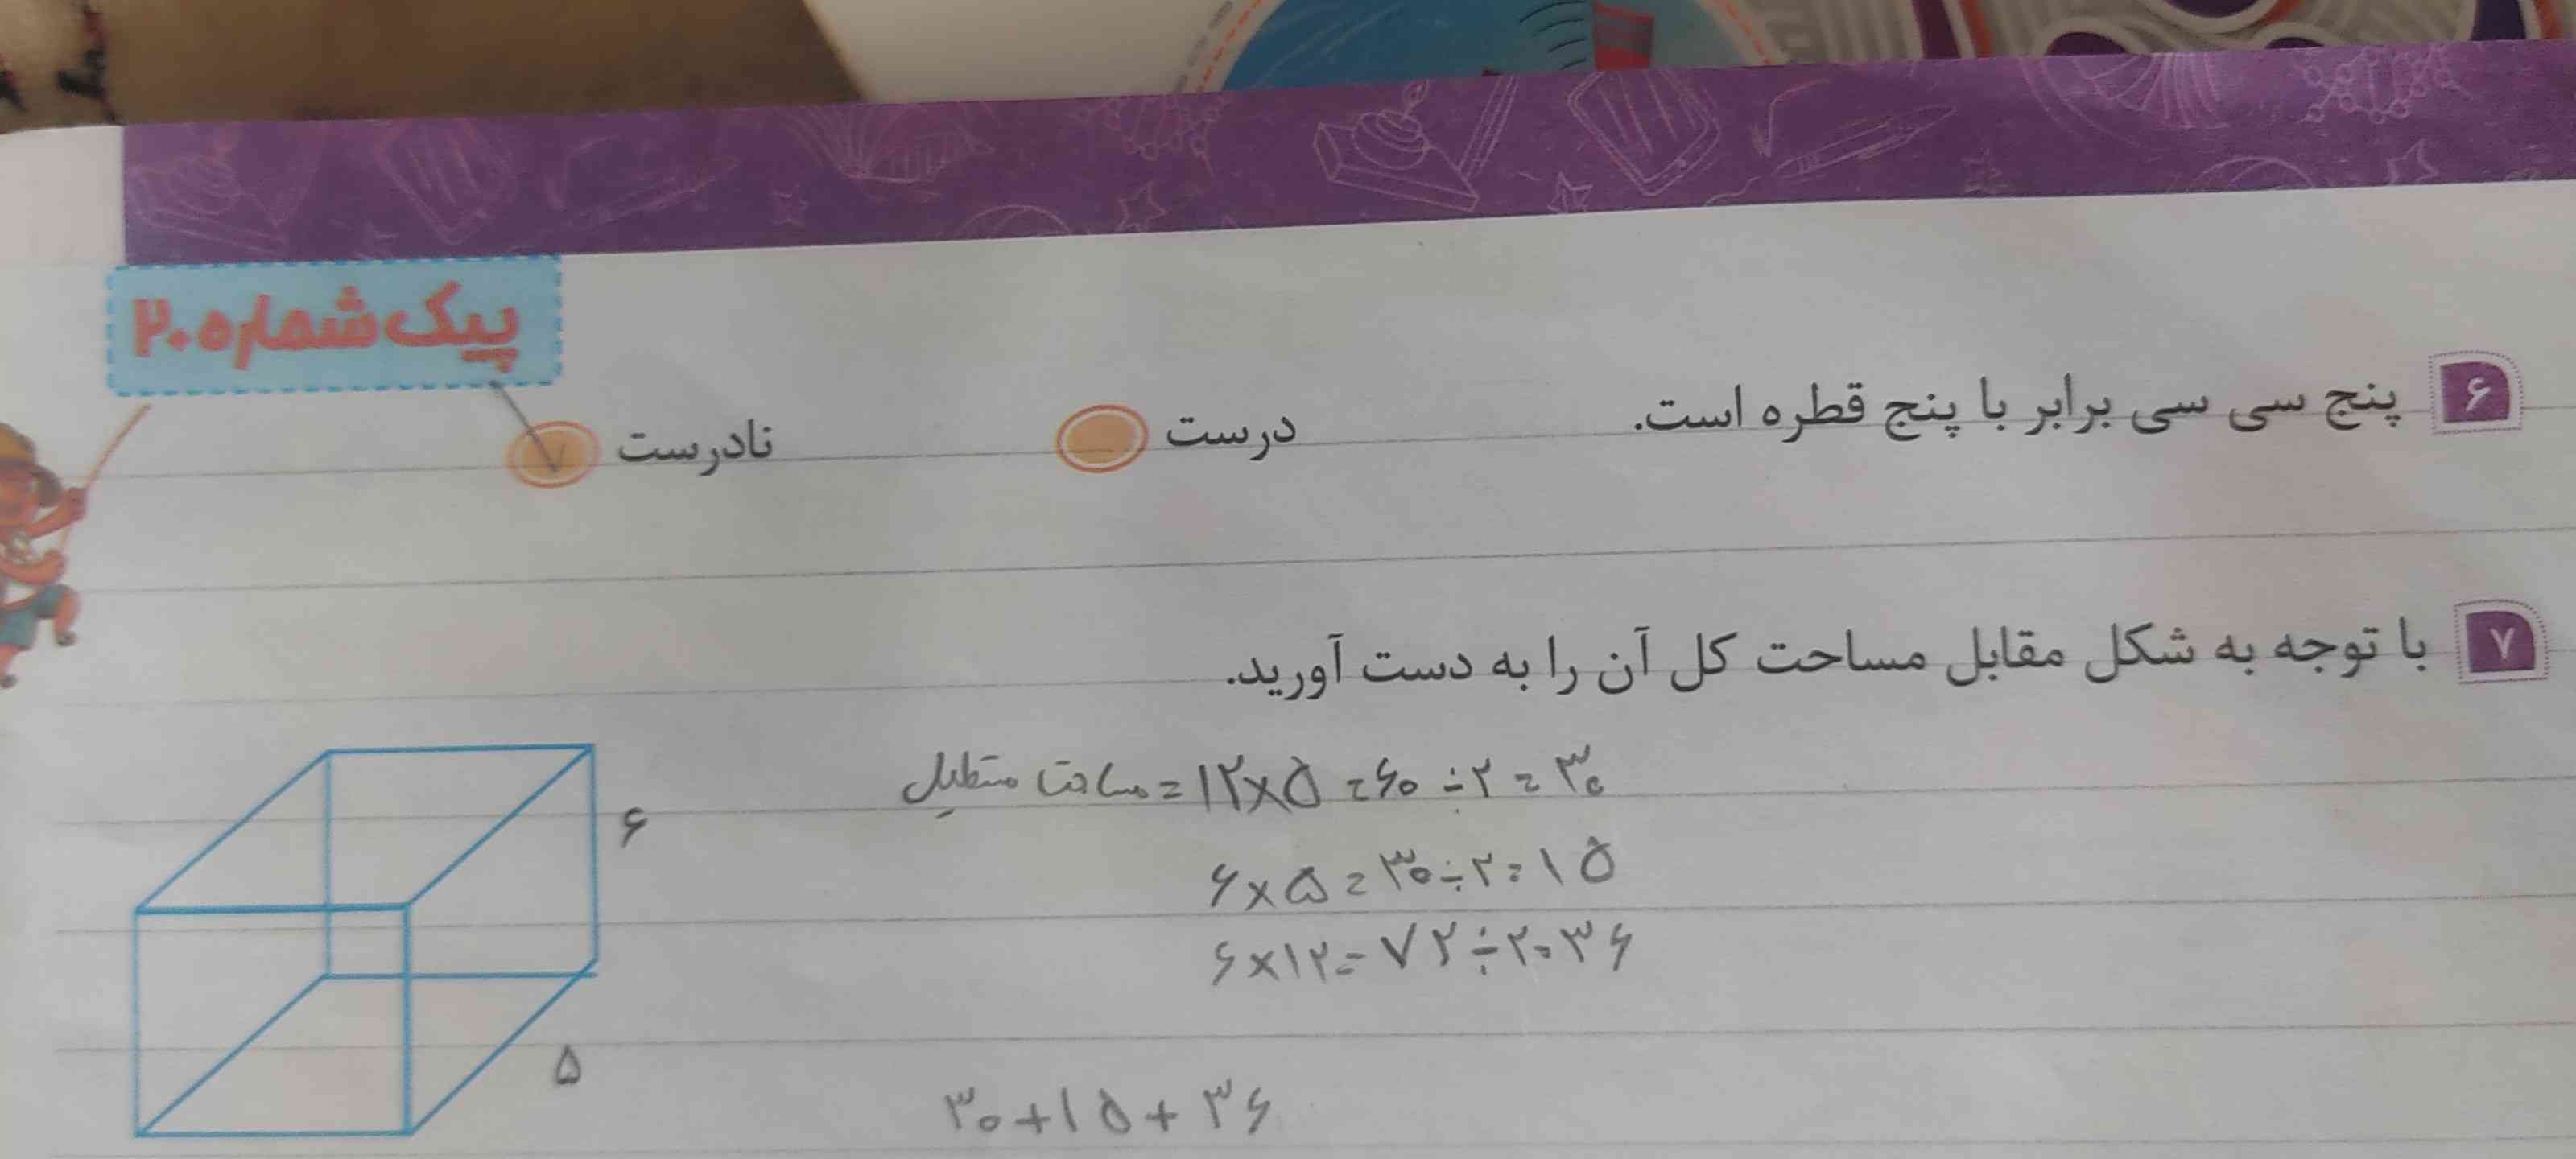 پیک شماره ۲۰
۶ پنج سی سی برابر با پنج قطره است. درست نادرست
۷ با توجه به شکل مقابل مساحت کل آن را به دست آورید.
مساحت مستطیل = ۱۲×۵ = ۶۰ ÷ ۲ = ۳۰
۶×۵ = ۳۰ ÷ ۲ = ۱۵
۶×۱۲ = ۷۲ ÷ ۲ = ۳۶
۶
۵
۳۰+۱۵+۳۶